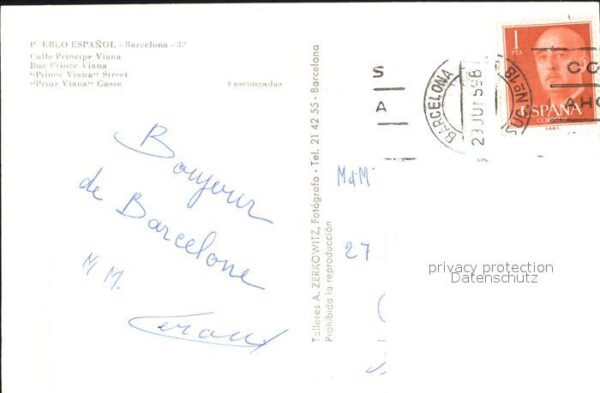 PUEBLO ESPAÑOL - Barcelona - 3
Calle Principe Viana
Rue Prince Viana
"Prince Viana" Street
"Prinz Viana" Gasse
Vascongadas
Bonjour
de Barcelone
M M.
Talleres A. ZERKOWITZ, Fotógrafo - Tel. 21 42 55 - Barcelona
Prohibida la reproducción
S
A
BARCELONA
29 JUN 59
1
PTA
ESPAÑA
CORREOS
CO
AHO
M d M
27
privacy protection
Datenschutz